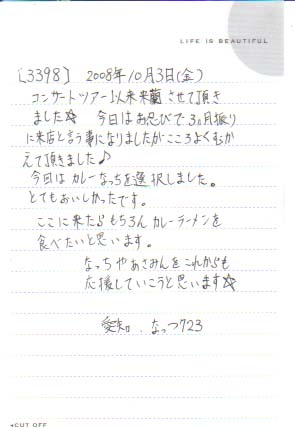 LIFE IS BEAUTIFUL
[3398] 2008年10月3日(金)
コンサートツアー以来来蘭させて頂き
ました☆ 今日はお忍びで3ヵ月振り
に来店と言う事になりましたがこころよくむか
えて頂きました♪
今日はカレーなっちを選択しました。
とてもおいしかったです。
ここに来たらもちろんカレーラーメンを
食べたいと思います。
なっちやあさみんをこれからも
応援していこうと思います☆
愛知 なっつ723
◂CUT OFF